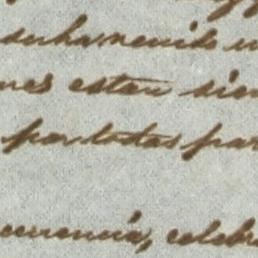 se ha reunido
nes estan sien
por todas par
currencia, celebr